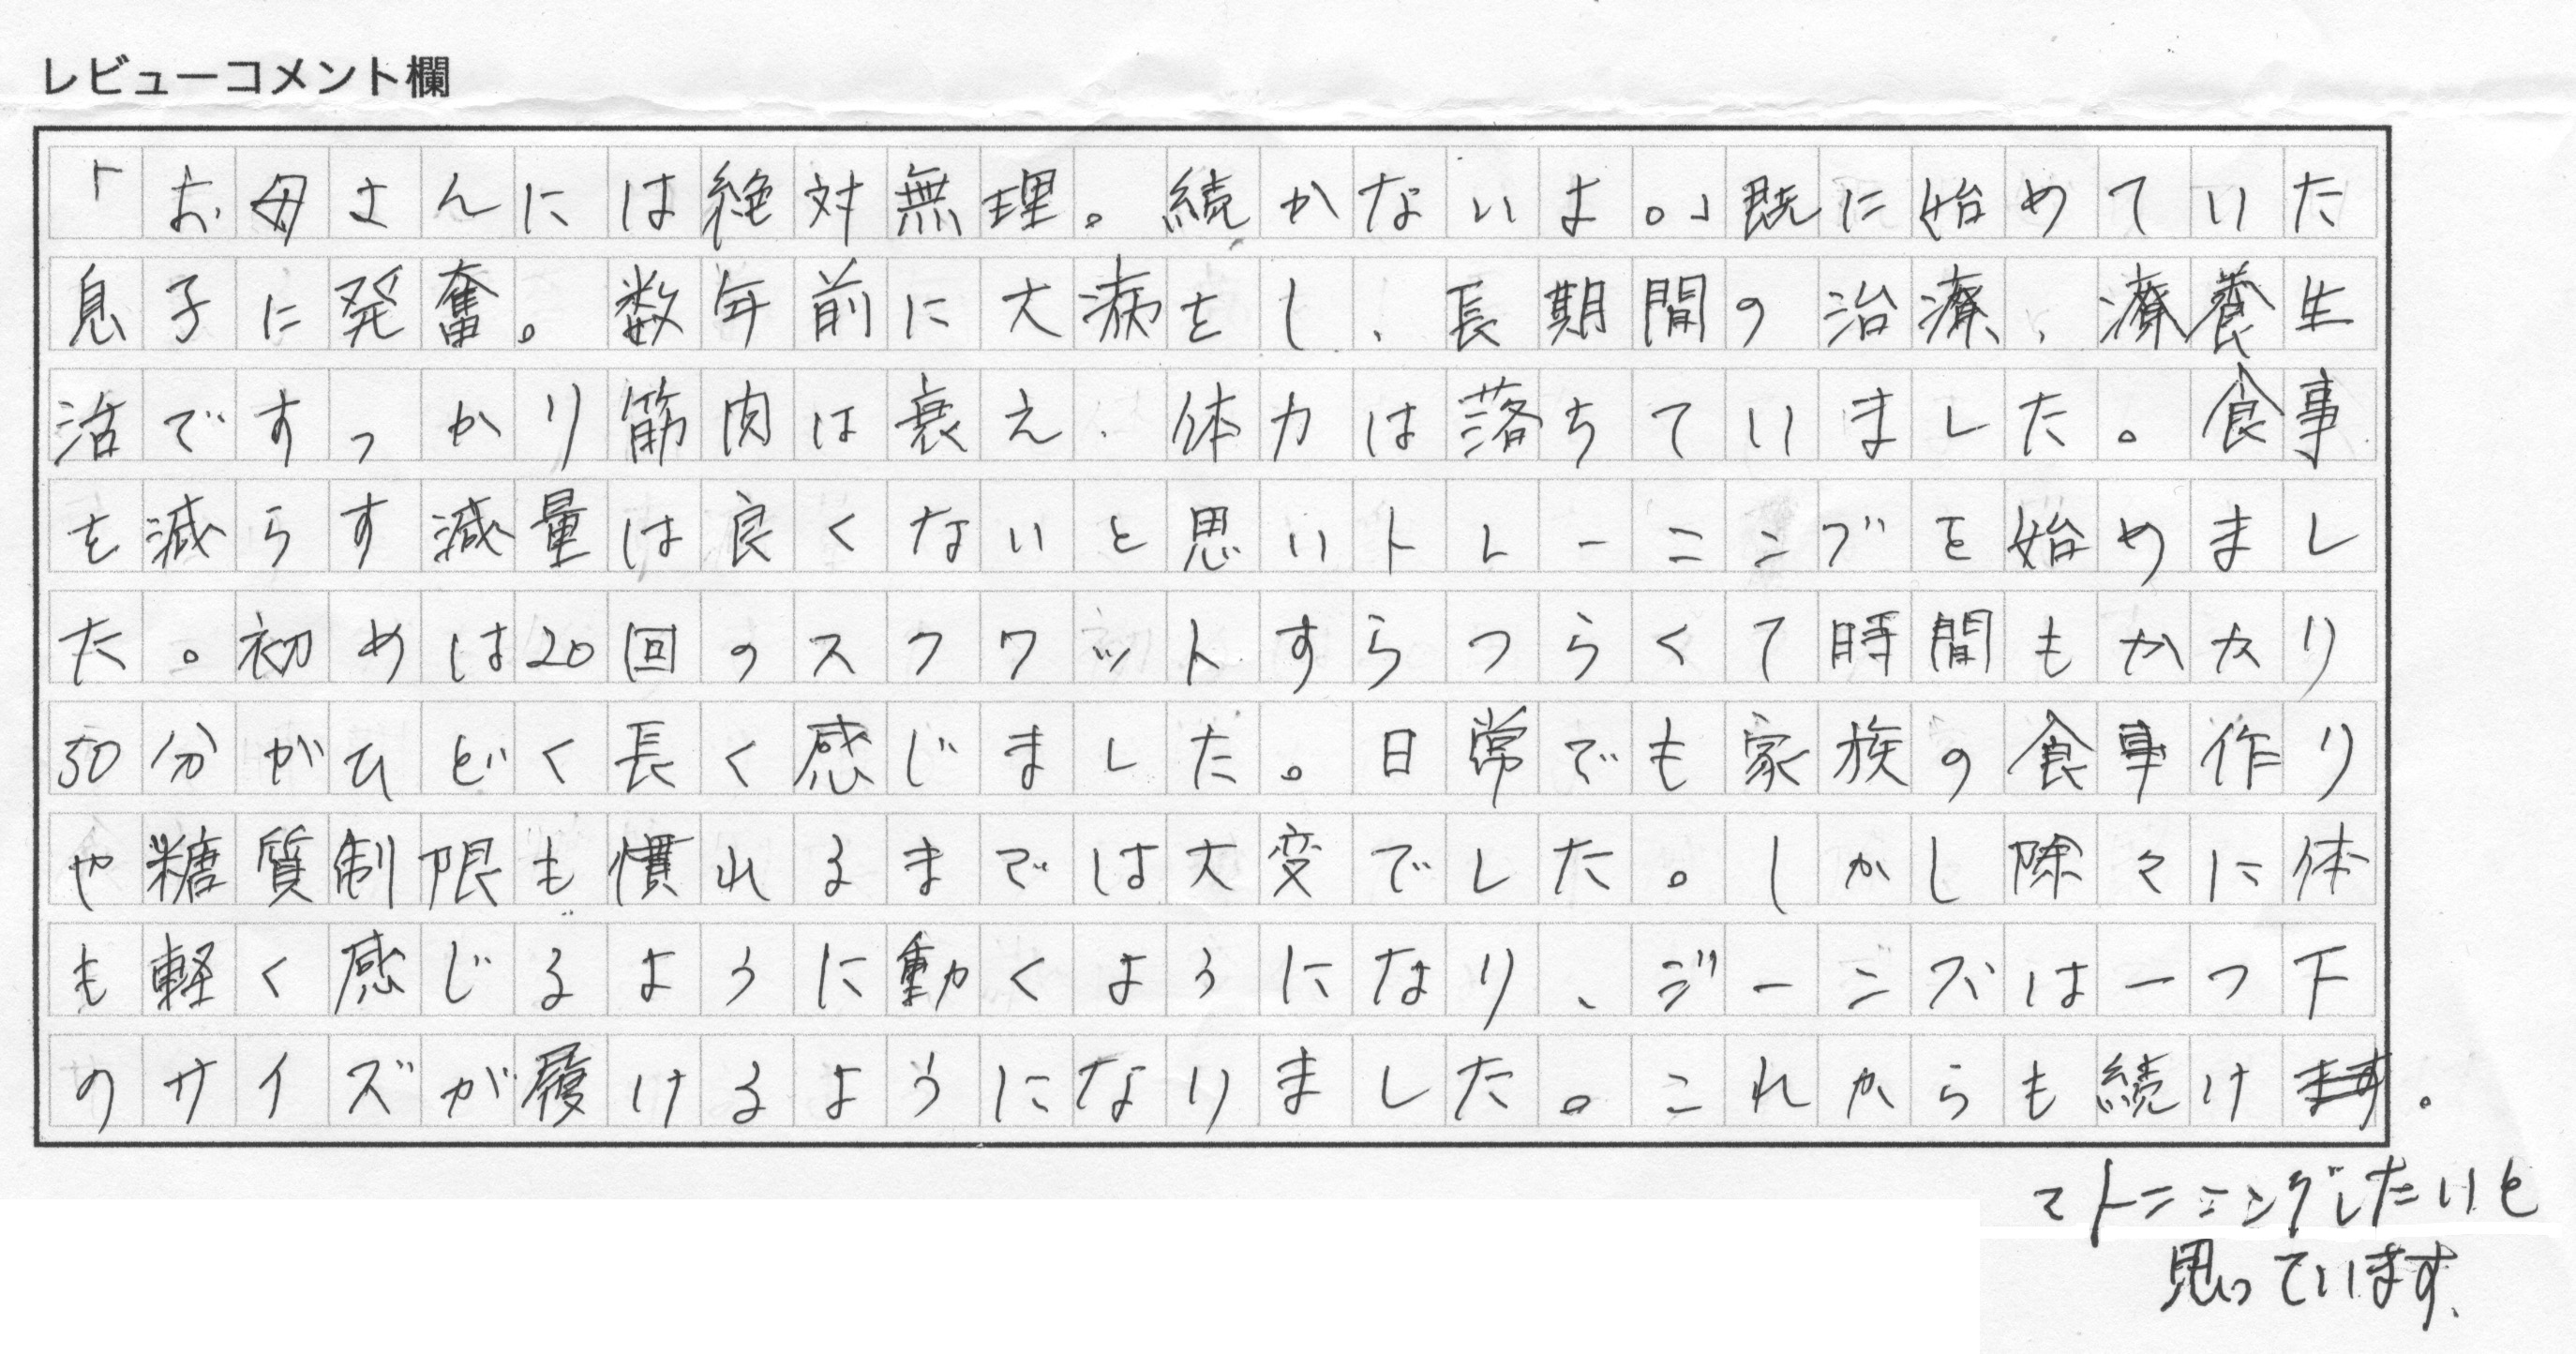 レビューコメント欄
「お母さんには絶対無理。続かないよ。」既に始めていた
息子に発奮。数年前に大病をし、長期間の治療、療養生
活ですっかり筋肉は衰え、体力は落ちていました。食事
を減らす減量は良くないと思いトレーニングを始めまし
た。初めは20回のスクワットすらつらくて時間もかかり
50分がひどく長く感じました。日常でも家族の食事作り
や糖質制限も慣れるまでは大変でした。しかし除々に体
も軽く感じるように動くようになり、ジーンズは一つ下
のサイズが履けるようになりました。これからも続けます。
てトニニングしたいと
思っています、